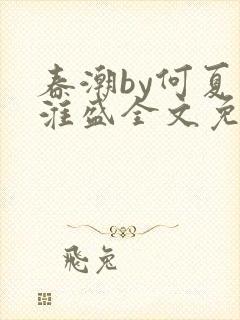 春潮by何夏
淮盛全文免
飛兔